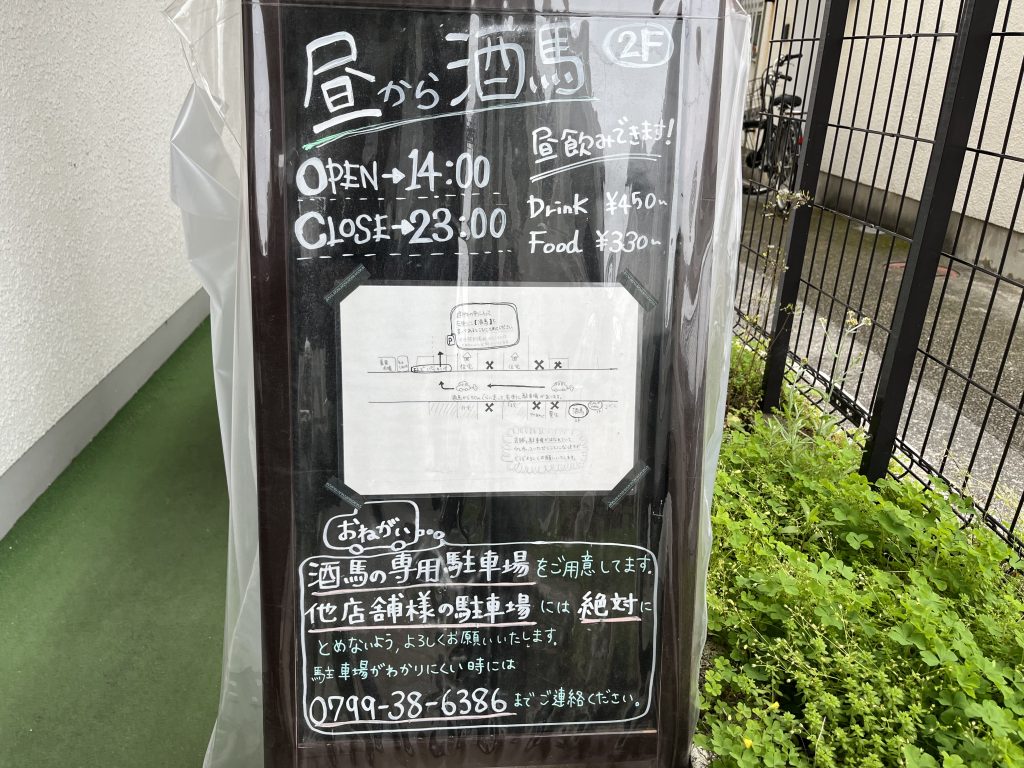 昼から酒馬 2F
昼飲みできます!
OPEN→14:00
CLOSE→23:00
Drink ¥450~
Food ¥330~
P
住宅 住宅
おねがい
酒馬の専用駐車場をご用意してます。
他店舗様の駐車場には絶対に
とめないよう,よろしくお願いいたします。
駐車場がわかりにくい時には
0799-38-6386までご連絡ください。